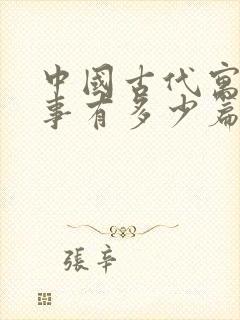 中國古代寓
事有多少篇
張辛